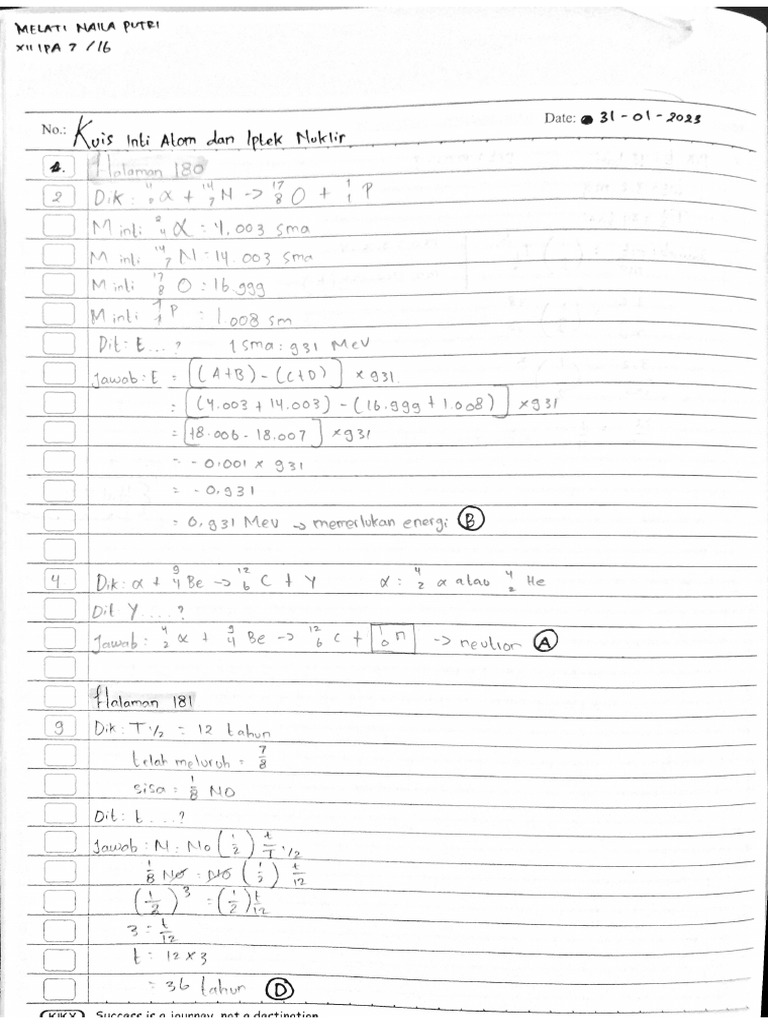 MELATI NAILA PUTRI
XII IPA 7 / 16
No.: Kuis Inti Atom dan Iptek Nuklir Date: 31-01-2023
Halaman 180
2 Dik: ⁴₂α + ¹⁴₇N -> ¹⁷₈O + ¹₁P
M inti ²₄α : 4,003 sma
M inti ¹⁴₇N : 14.003 sma
M inti ¹⁷₈O : 16.999
M inti ¹₁P : 1.008 sm
Dit: E...? 1 sma : 931 MeV
Jawab : E = [(A+B) - (C+D)] × 931
= [(4.003 + 14.003) - (16.999 + 1.008)] × 931
= [18.006 - 18.007] × 931
= - 0.001 × 931
= - 0.931
= 0,931 Mev -> memerlukan energi (B)
4 Dik: α + ⁹₄Be -> ¹²₆C + Y α : ⁴₂α atau ⁴₂He
Dit Y ....?
Jawab : ⁴₂α + ⁹₄Be -> ¹²₆C + ¹₀n -> neutron (A)
Halaman 181
9 Dik: T 1/2 = 12 tahun
telah meluruh = 7/8
sisa = 1/8 No
Dit : t....?
Jawab : N : No (1/2) t/T 1/2
1/8 No = No (1/2) t/12
(1/2)³ = (1/2) t/12
3 = t/12
t : 12 × 3
= 36 tahun (D)
KIKY Success is a journey, not a destination